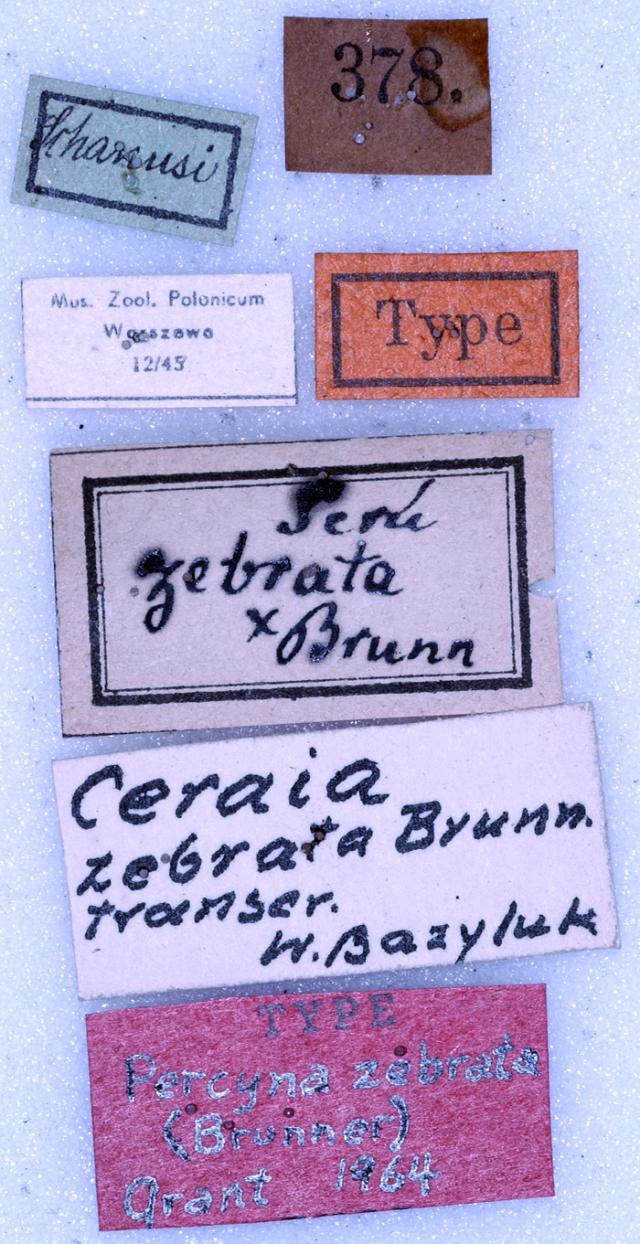 378.
Chanusi
Mus. Zool. Polonicum
Warszawa
12/45
Type
Perú
zebrata
x Brunn
Ceraia
zebrata Brunn.
transcr.
W. Bazyluk
TYPE
Percyna zebrata
(Brunner)
Grant 1964